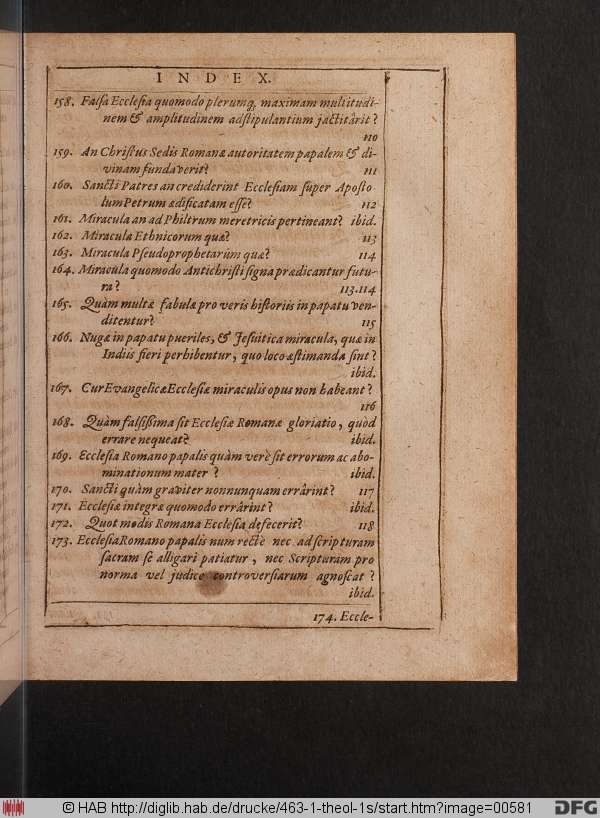 INDEX.
158. Falsa Ecclesia quomodo plerumq́, maximam multitudi-
nem & amplitudinem adstipulantium jactitârit?
110
159. An Christus Sedis Romanæ autoritatem papalem & di-
vinam fundaverit? 111
160. Sancti Patres an crediderint Ecclesiam super Aposto
lum Petrum ædificatam esse? 112
161. Miracula an ad Philtrum meretricis pertineant? ibid.
162. Miracula Ethnicorum quæ? 113
163. Miracula Pseudoprophetarum quæ? 114
164. Miracula quomodo Antichristi signa prædicantur futu-
ra? 113.114
165. Quàm multæ fabulæ pro veris historiis in papatu ven-
ditentur? 115
166. Nugæ in papatu pueriles, & Jesuitica miracula, quæ in
Indiis fieri perhibentur, quo loco æstimanda sint?
ibid.
167. Cur Evangelicæ Ecclesiæ miraculis opus non habeant?
116
168. Quàm falsissima sit Ecclesiæ Romanæ gloriatio, quòd
errare nequeat? ibid.
169. Ecclesia Romano papalis quàm verè sit errorum ac abo-
minationum mater? ibid.
170. Sancti quàm graviter nonnunquam errârint? 117
171. Ecclesiæ integræ quomodo errârint? ibid.
172. Quot modis Romana Ecclesia defecerit? 118
173. Ecclesia Romano papalis num rectè nec ad scripturam
sacram se alligari patiatur, nec Scripturam pro
norma vel judice controversiarum agnoscat?
ibid.
174. Eccle-
© HAB http://diglib.hab.de/drucke/463-1-theol-1s/start.htm?image=00581
DFG